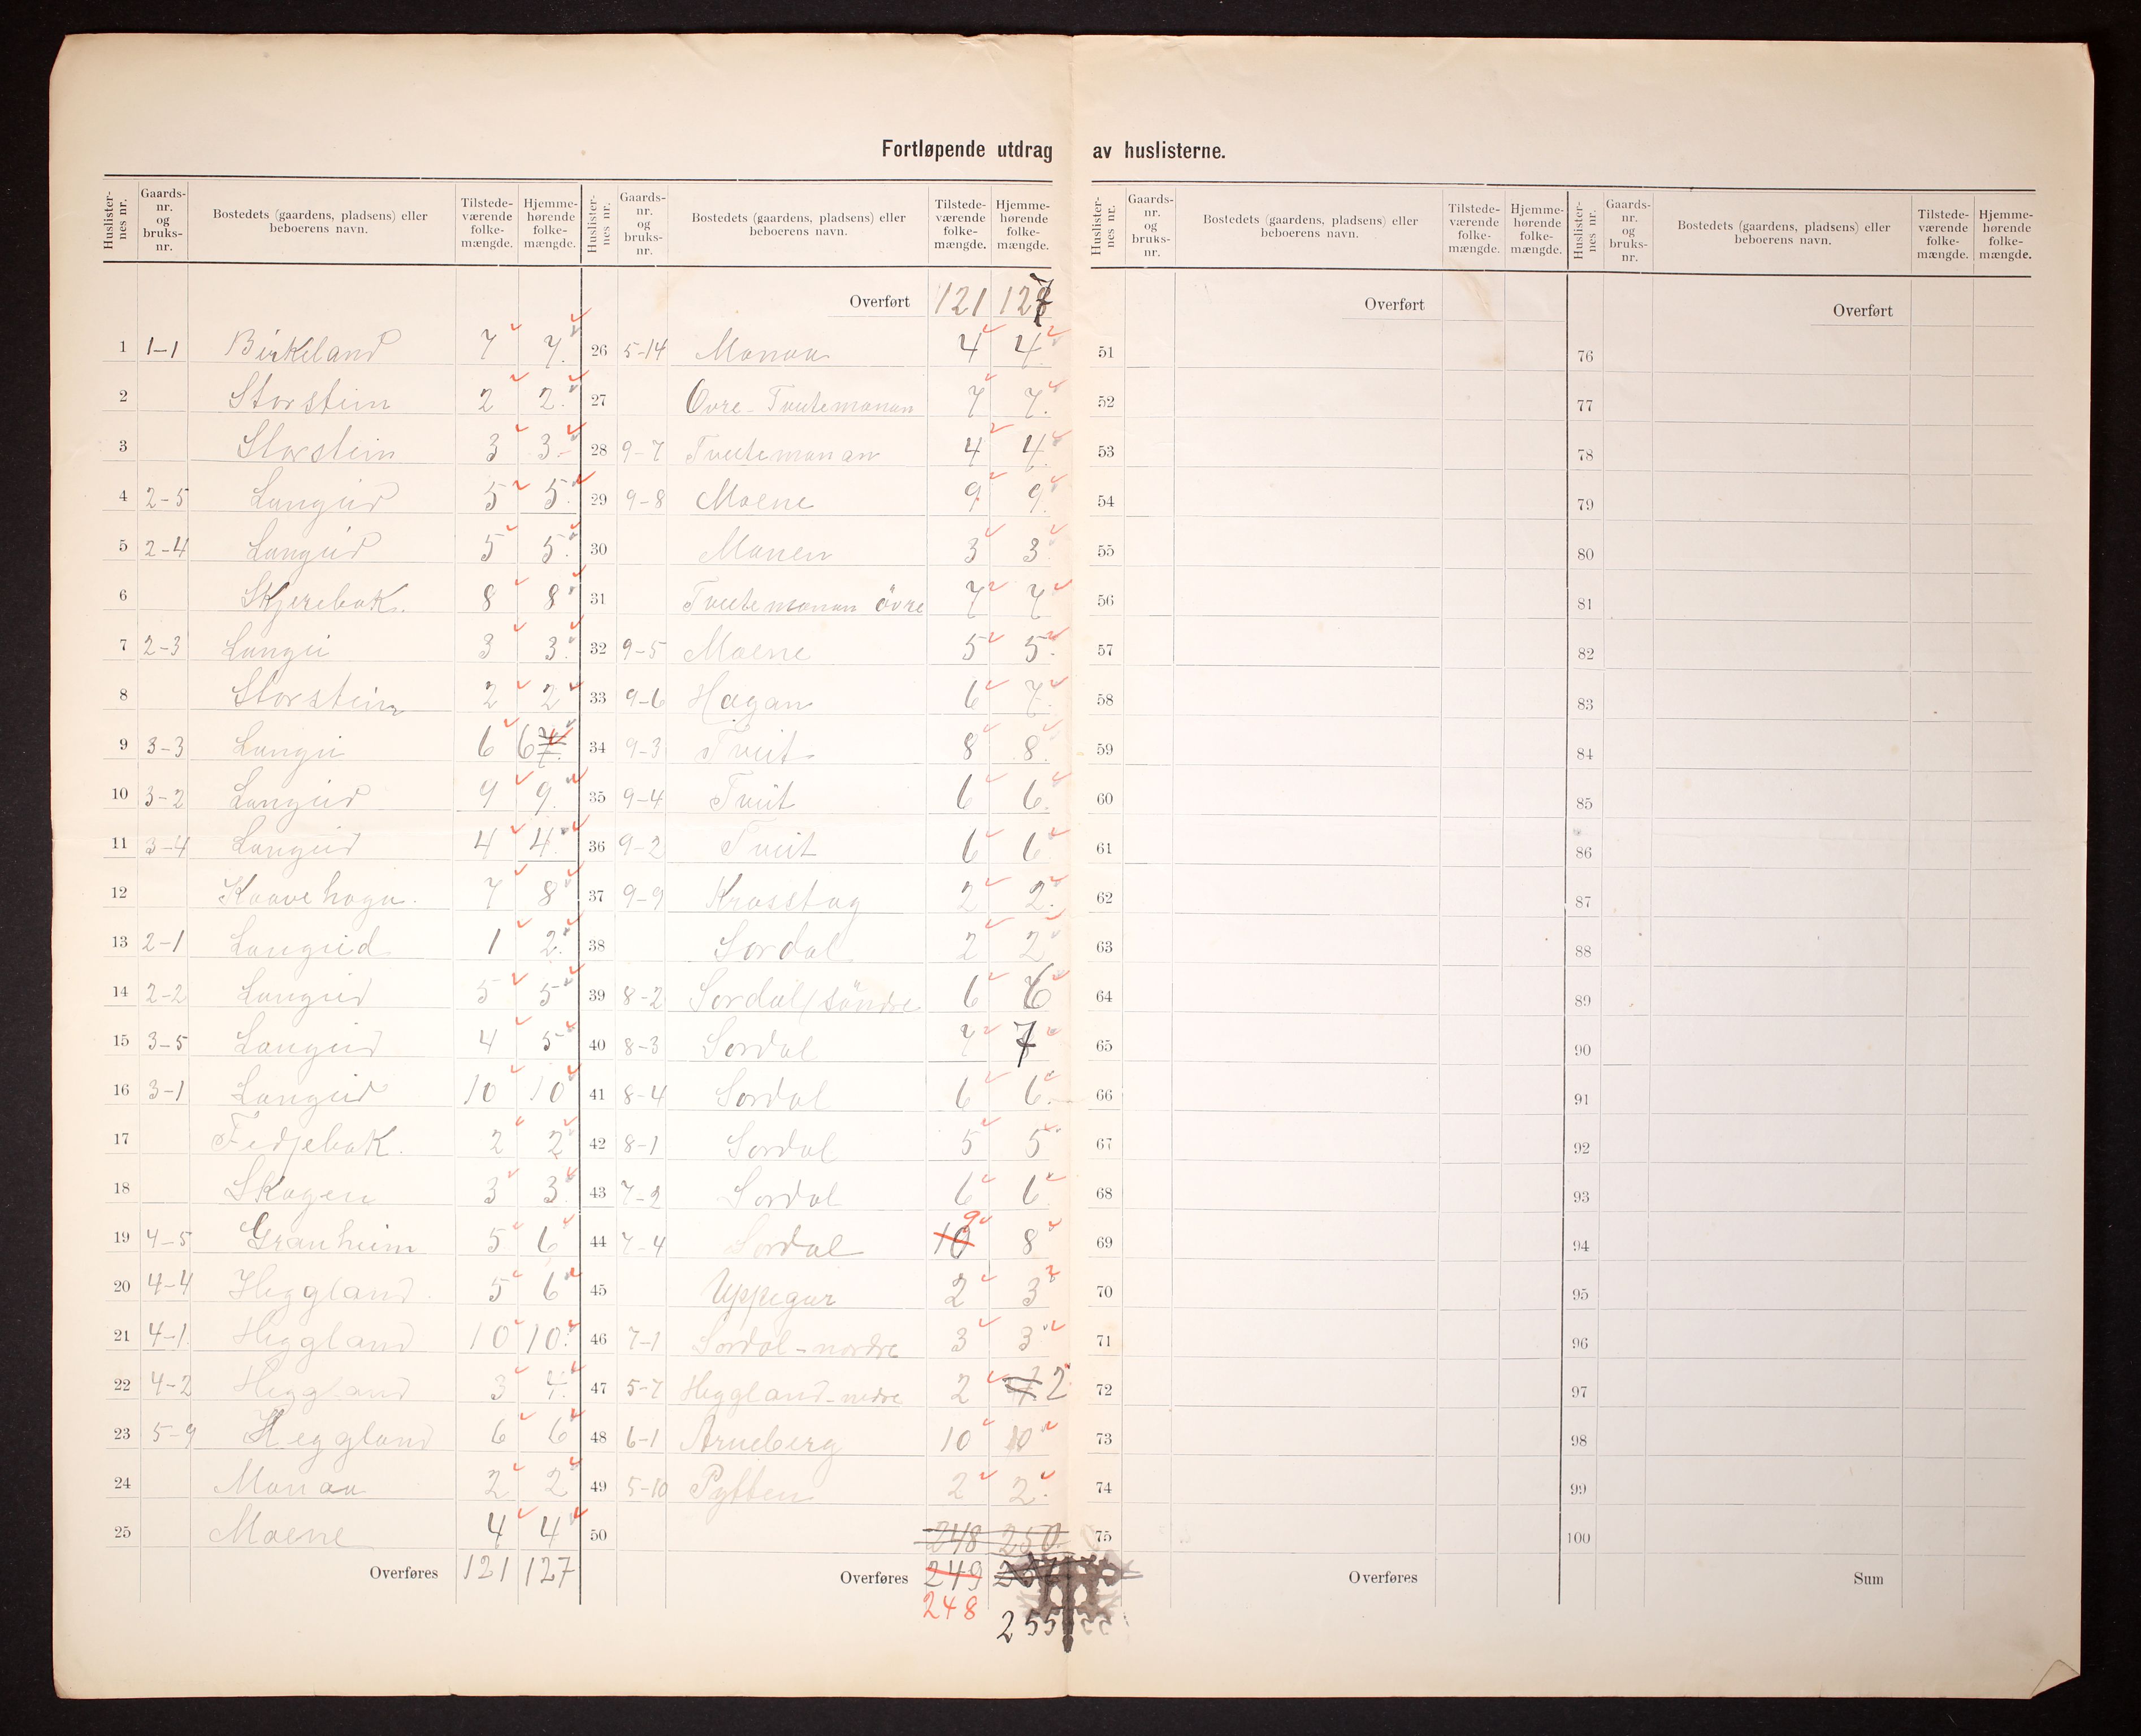 Fortløpende utdrag av huslisterne.
Huslister-nes nr. Gaards-nr. og bruks-nr. Bostedets (gaardens, pladsens) eller beboerens navn. Tilstede-værende folke-mængde. Hjemme-hørende folke-mængde.
1 1-1 Birkeland 7 7.
2 Storstein 2 2.
3 Storstein 3 3
4 2-5 Langeid 5 5.
5 2-4 Langeid 5 5.
6 Skjerebak. 8 8
7 2-3 Langei 3 3.
8 Storstein 2 2
9 3-3 Langei 6 6 7.
10 3-2 Langeid 9 9.
11 3-4 Langeid 4 4.
12 Kaavehagn. 7 8
13 2-1 Langeid 1 2.
14 2-2 Langeid 5 5
15 3-5 Langeid 4 5
16 3-1 Langeid 10 10
17 Fedjebak. 2 2
18 Skogen 3 3.
19 4-5 Granheim 5 6
20 4-4 Heggland. 5 6
21 4-1 Heggland 10 10.
22 4-2 Heggland 3 4.
23 5-9 Heggland 6 6
24 Monan 2 2
25 Moene 4 4
Overføres 121 127
Huslister-nes nr. Gaards-nr. og bruks-nr. Bostedets (gaardens, pladsens) eller beboerens navn. Tilstede-værende folke-mængde. Hjemme-hørende folke-mængde.
Overført 121 127
26 5-14 Monan 4 4
27 Ovre-Tveitemonan 7 7.
28 9-7 Tveitemonan 4 4.
29 9-8 Moene 9 9.
30 Monen 3 3.
31 Tveitemonan övre 7 7
32 9-5 Moene 5 5.
33 9-6 Hagan 6 7.
34 9-3 Tveit 8 8.
35 9-4 Tveit 6 6.
36 9-2 Tveit 6 6
37 9-9 Krosstag 2 2.
38 Sordal 2 2
39 8-2 Sordal söndre 6 6
40 8-3 Sordal 7 7
41 8-4 Sordal 6 6.
42 8-1 Sordal 5 5
43 7-2 Sordal 6 6
44 7-4 Sordal 10 9 8
45 Uppigar 2 3
46 7-1 Sordal-nordre 3 3
47 5-7 Heggland-nedre 2 2
48 6-1 Arneberg 10 10
49 5-10 Pytten 2 2.
50 248 250
Overføres 249
248 255
Huslister-nes nr. Gaards-nr. og bruks-nr. Bostedets (gaardens, pladsens) eller beboerens navn. Tilstede-værende folke-mængde. Hjemme-hørende folke-mængde.
Overført
51
52
53
54
55
56
57
58
59
60
61
62
63
64
65
66
67
68
69
70
71
72
73
74
75
Overføres
Huslister-nes nr. Gaards-nr. og bruks-nr. Bostedets (gaardens, pladsens) eller beboerens navn. Tilstede-værende folke-mængde. Hjemme-hørende folke-mængde.
Overført
76
77
78
79
80
81
82
83
84
85
86
87
88
89
90
91
92
93
94
95
96
97
98
99
100
Sum